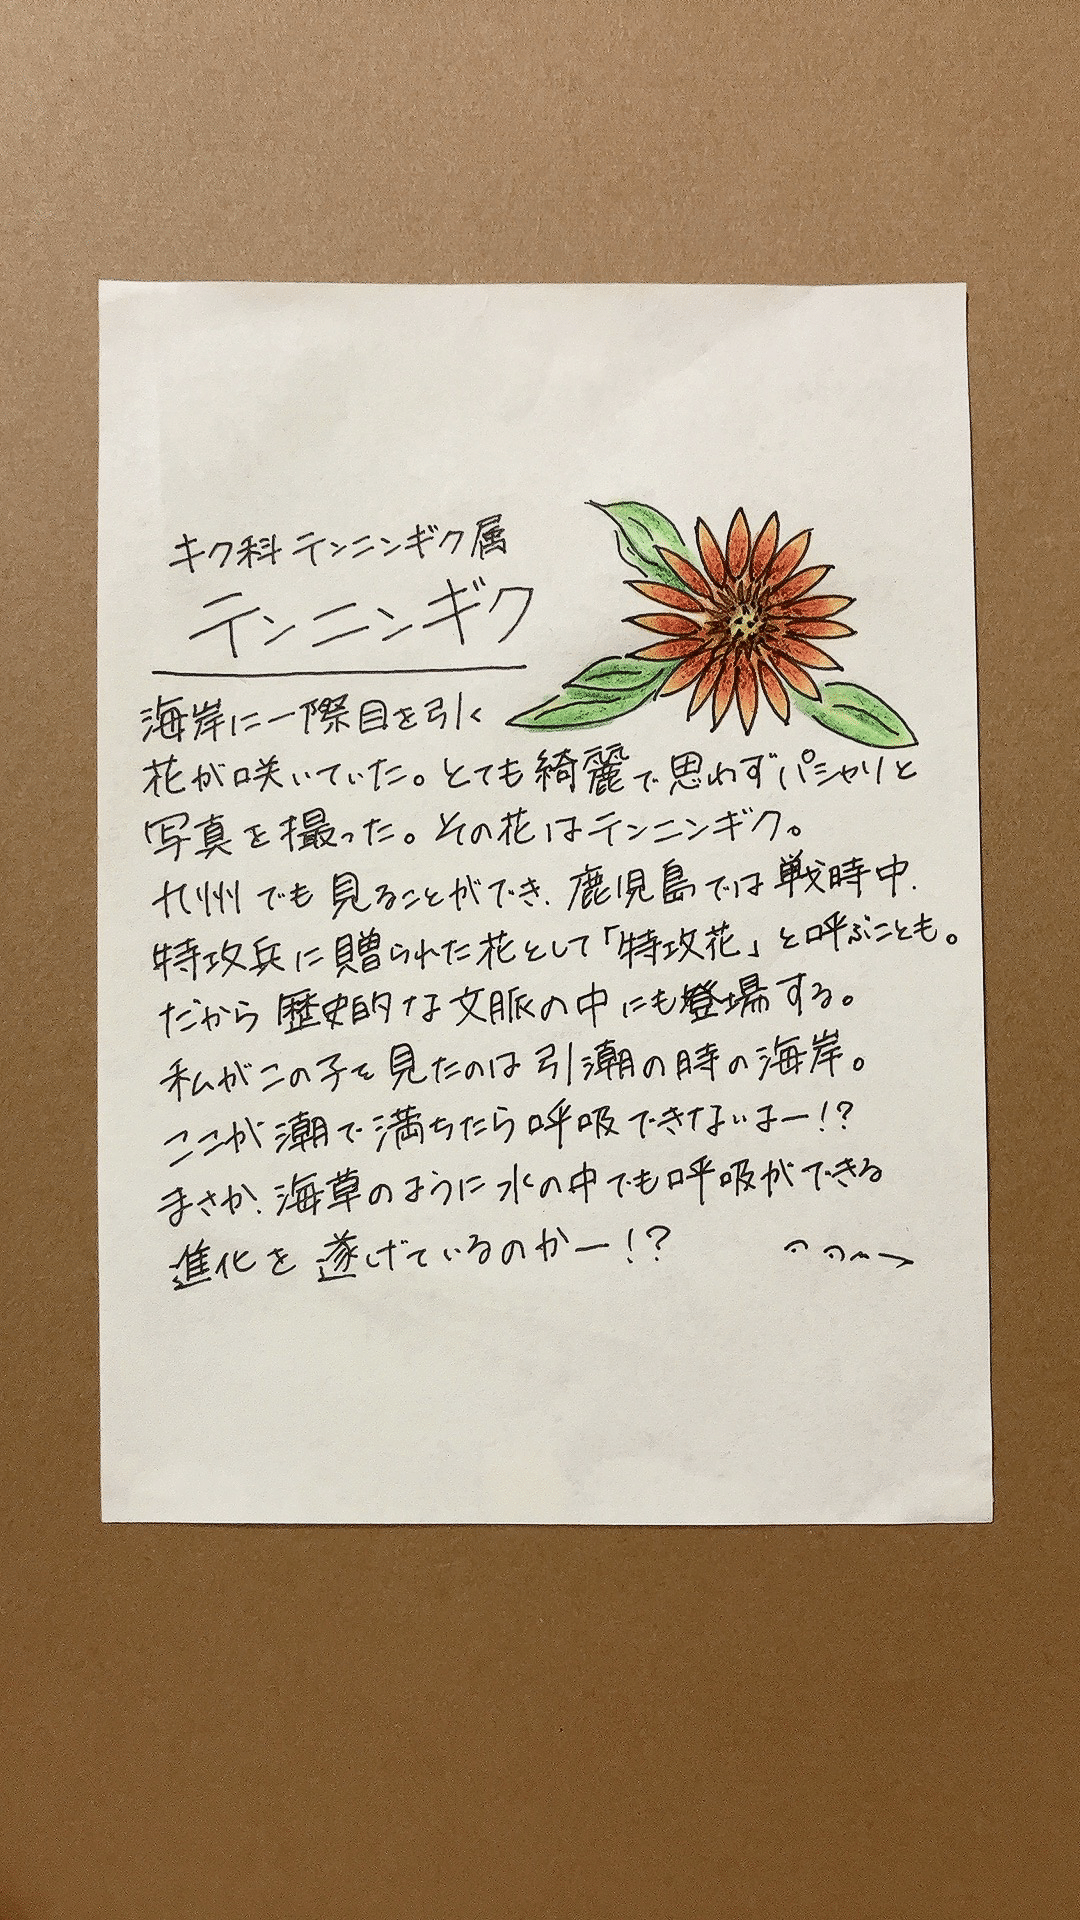 キク科 テンニンギク属
テンニンギク
海岸に一際目を引く
花が咲いていた。とても綺麗で思わずパシャリと
写真を撮った。その花はテンニンギク。
九州でも見ることができ、鹿児島では戦時中、
特攻兵に贈られた花として「特攻花」と呼ぶことも。
だから歴史的な文脈の中にも登場する。
私がこの子を見たのは引潮の時の海岸。
ここが潮で満ちたら呼吸できないよー!?
まさか、海草のように水の中でも呼吸ができる
進化を遂げているのかー!?